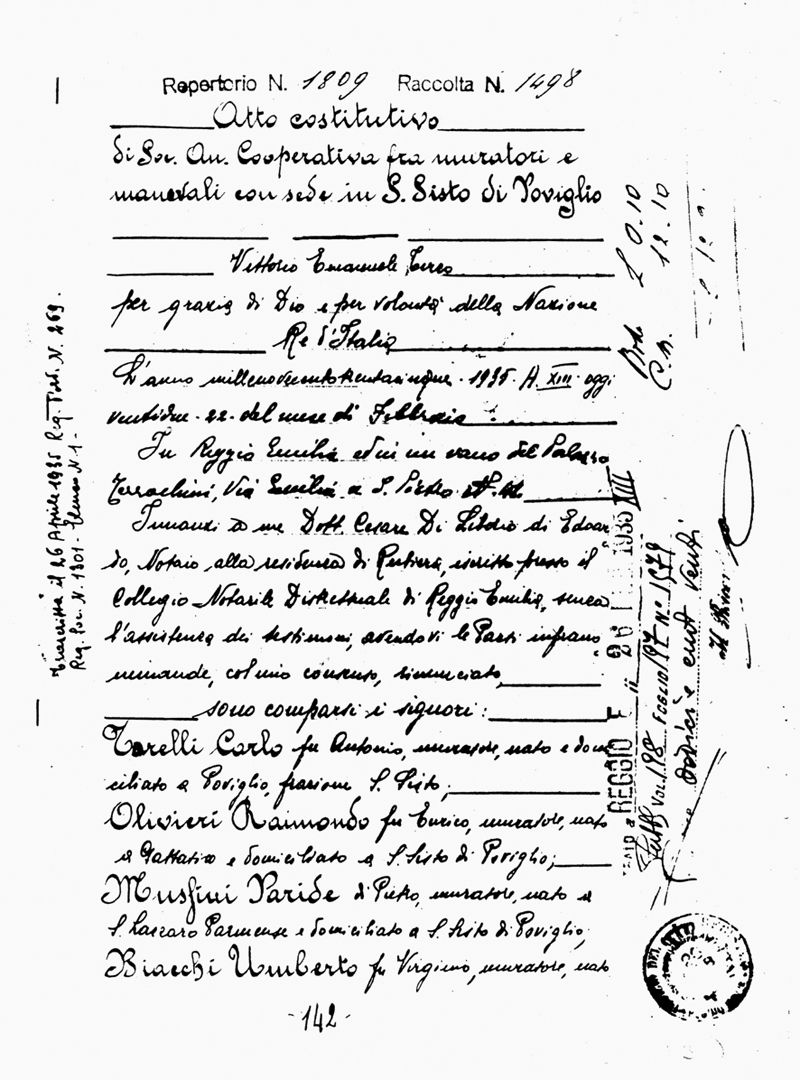 Repertorio N. 1809 Raccolta N. 1498
Atto costitutivo
di Soc. An. Cooperativa fra muratori e
manovali con sede in S. Sisto di Poviglio
Vittorio Emanuele Terzo
per grazia di Dio e per volontà della Nazione
Re d'Italia
L'anno millenovecentotrentacinque - 1935 - A. XIII - oggi
ventidue - 22 - del mese di Febbraio
In Reggio Emilia ed in un vano del Palazzo
Terrachini, Via Emilia a S. Pietro
Innanzi a me Dott. Cesare Di Liborio di Edoar
do, Notaio alla residenza di Rubiera, iscritto presso il
Collegio Notarile Distrettuale di Reggio Emilia, senza
l'assistenza dei testimoni, avendovi le Parti infrano
minande, col mio consenso, rinunciato,
sono comparsi i signori:
Torelli Carlo fu Antonio, muratore, nato e domi
ciliato a Poviglio, frazione S. Sisto;
Olivieri Raimondo fu Enrico, muratore, nato
a Gattatico e domiciliato a S. Sisto di Poviglio;
Mussini Paride di Pietro, muratore, nato a
S. Lazzaro Parmense e domiciliato a S. Sisto di Poviglio;
Biacchi Umberto fu Virginio, muratore, nato
-142-
Trascritta il 26 Aprile 1935 Reg. N. 269.
Reg. Soc. N. 1301 - Elenco N. 1 -
0.10
12.10
REGGIO E.
1935 XIII
VOL. 198 FOGLIO 197 N° 1679
dodici e cent venti